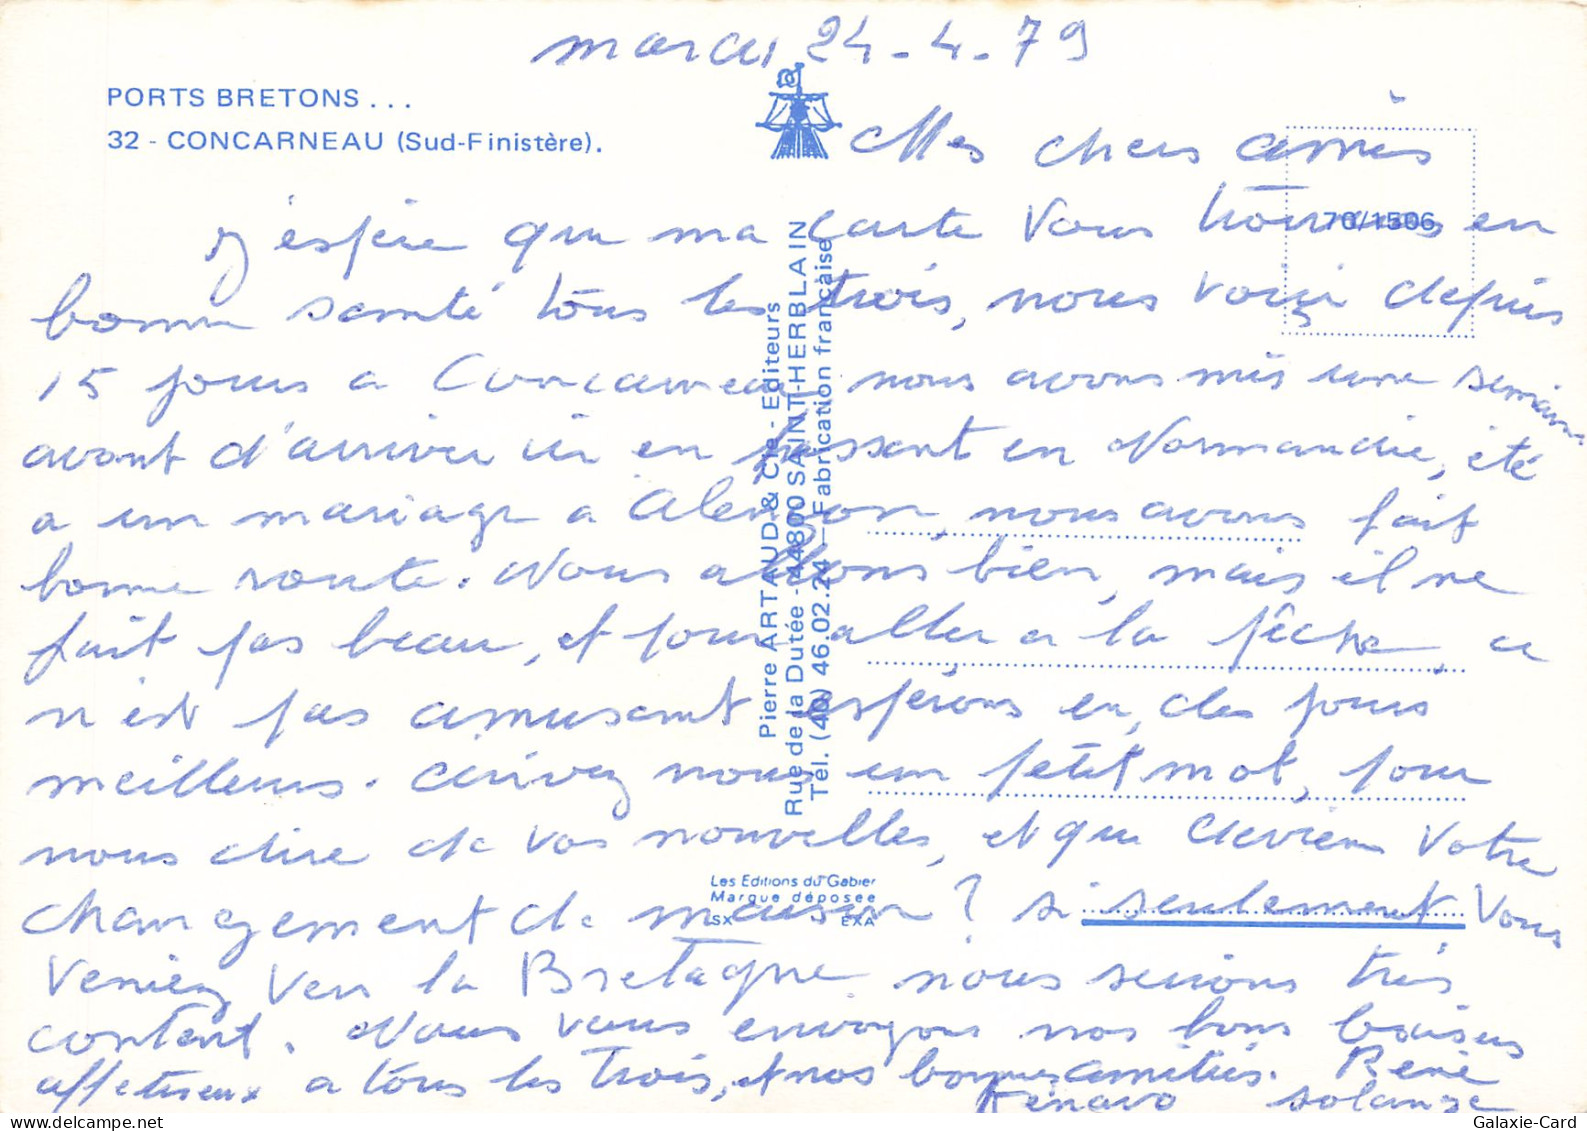 mardi 24-4-79
PORTS BRETONS...
32 - CONCARNEAU (Sud-Finistère).
Mes chers amis
j'espère que ma carte vous trouvera en
bonne santé tous les trois, nous voici depuis
15 jours a Concarneau, nous avons mis une semaine
avant d'arriver ici en passant en Normandie, été
a un mariage a Alençon, nous avons fait
bonne route. Nous allons bien, mais il ne
fait pas beau, et pour aller a la pêche, ce
n'est pas amusant espérons en, des jours
meilleurs. écrivez nous un petit mot, pour
nous dire de vos nouvelles, et que devient votre
changement de maison? si seulement vous
veniez vers la Bretagne nous serions très
content. Nous vous envoyons nos bons baisers
affectueux a tous les trois, et nos bonnes amitiés. René
Kenavo Solange
70/1506
Pierre ARTAUD & Cie - Editeurs
Rue de la Dutée - 44800 SAINT-HERBLAIN
Tél. (40) 46.02.24 - Fabrication française
Les Editions du Gabier
Marque déposée
LSX EXA
Galaxie-Card